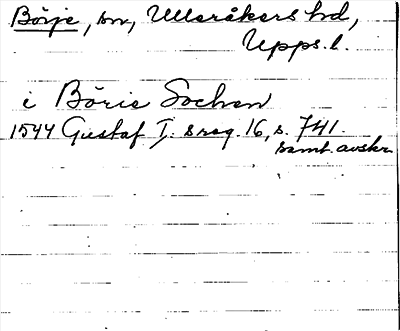 Börje, sn, Ulleråkers hd,
Upps. l.
i Börie Sochen
1544 Gustaf I:s reg. 16, s. 741.
samt avskr.